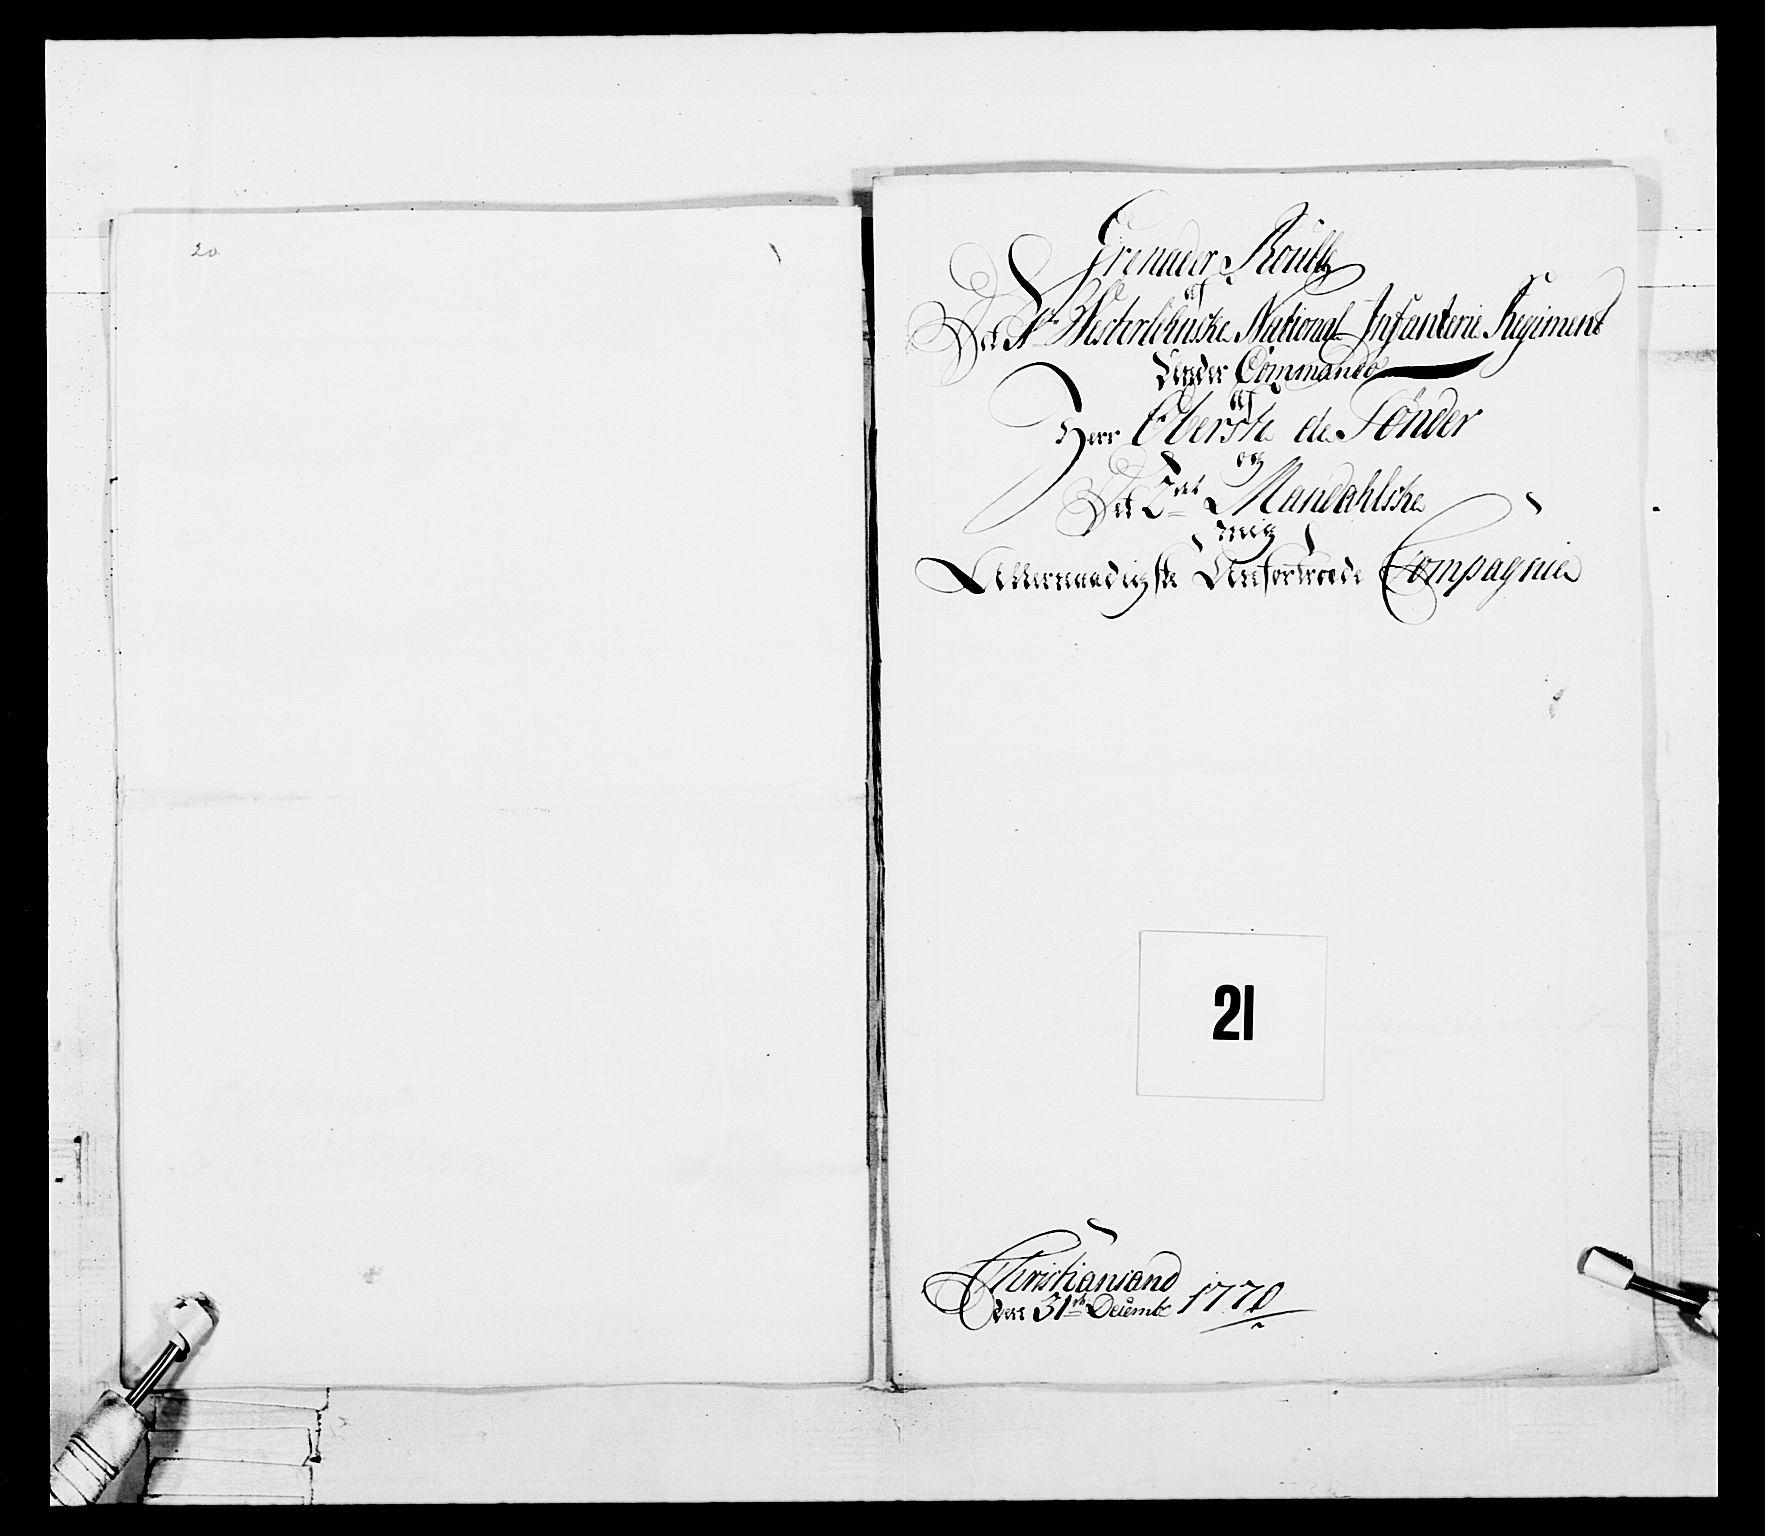 20
Grenadeer Roulle
af
Det 1ste Westerlehnske National Infanterie Regiment
Under Commando
af
Herr Oberste de Tønder
og
Det 2det Mandahlske
mig
Allernaadigste Anfortroede Compagnie
21
Christiansand
den 31te Decembr 1770